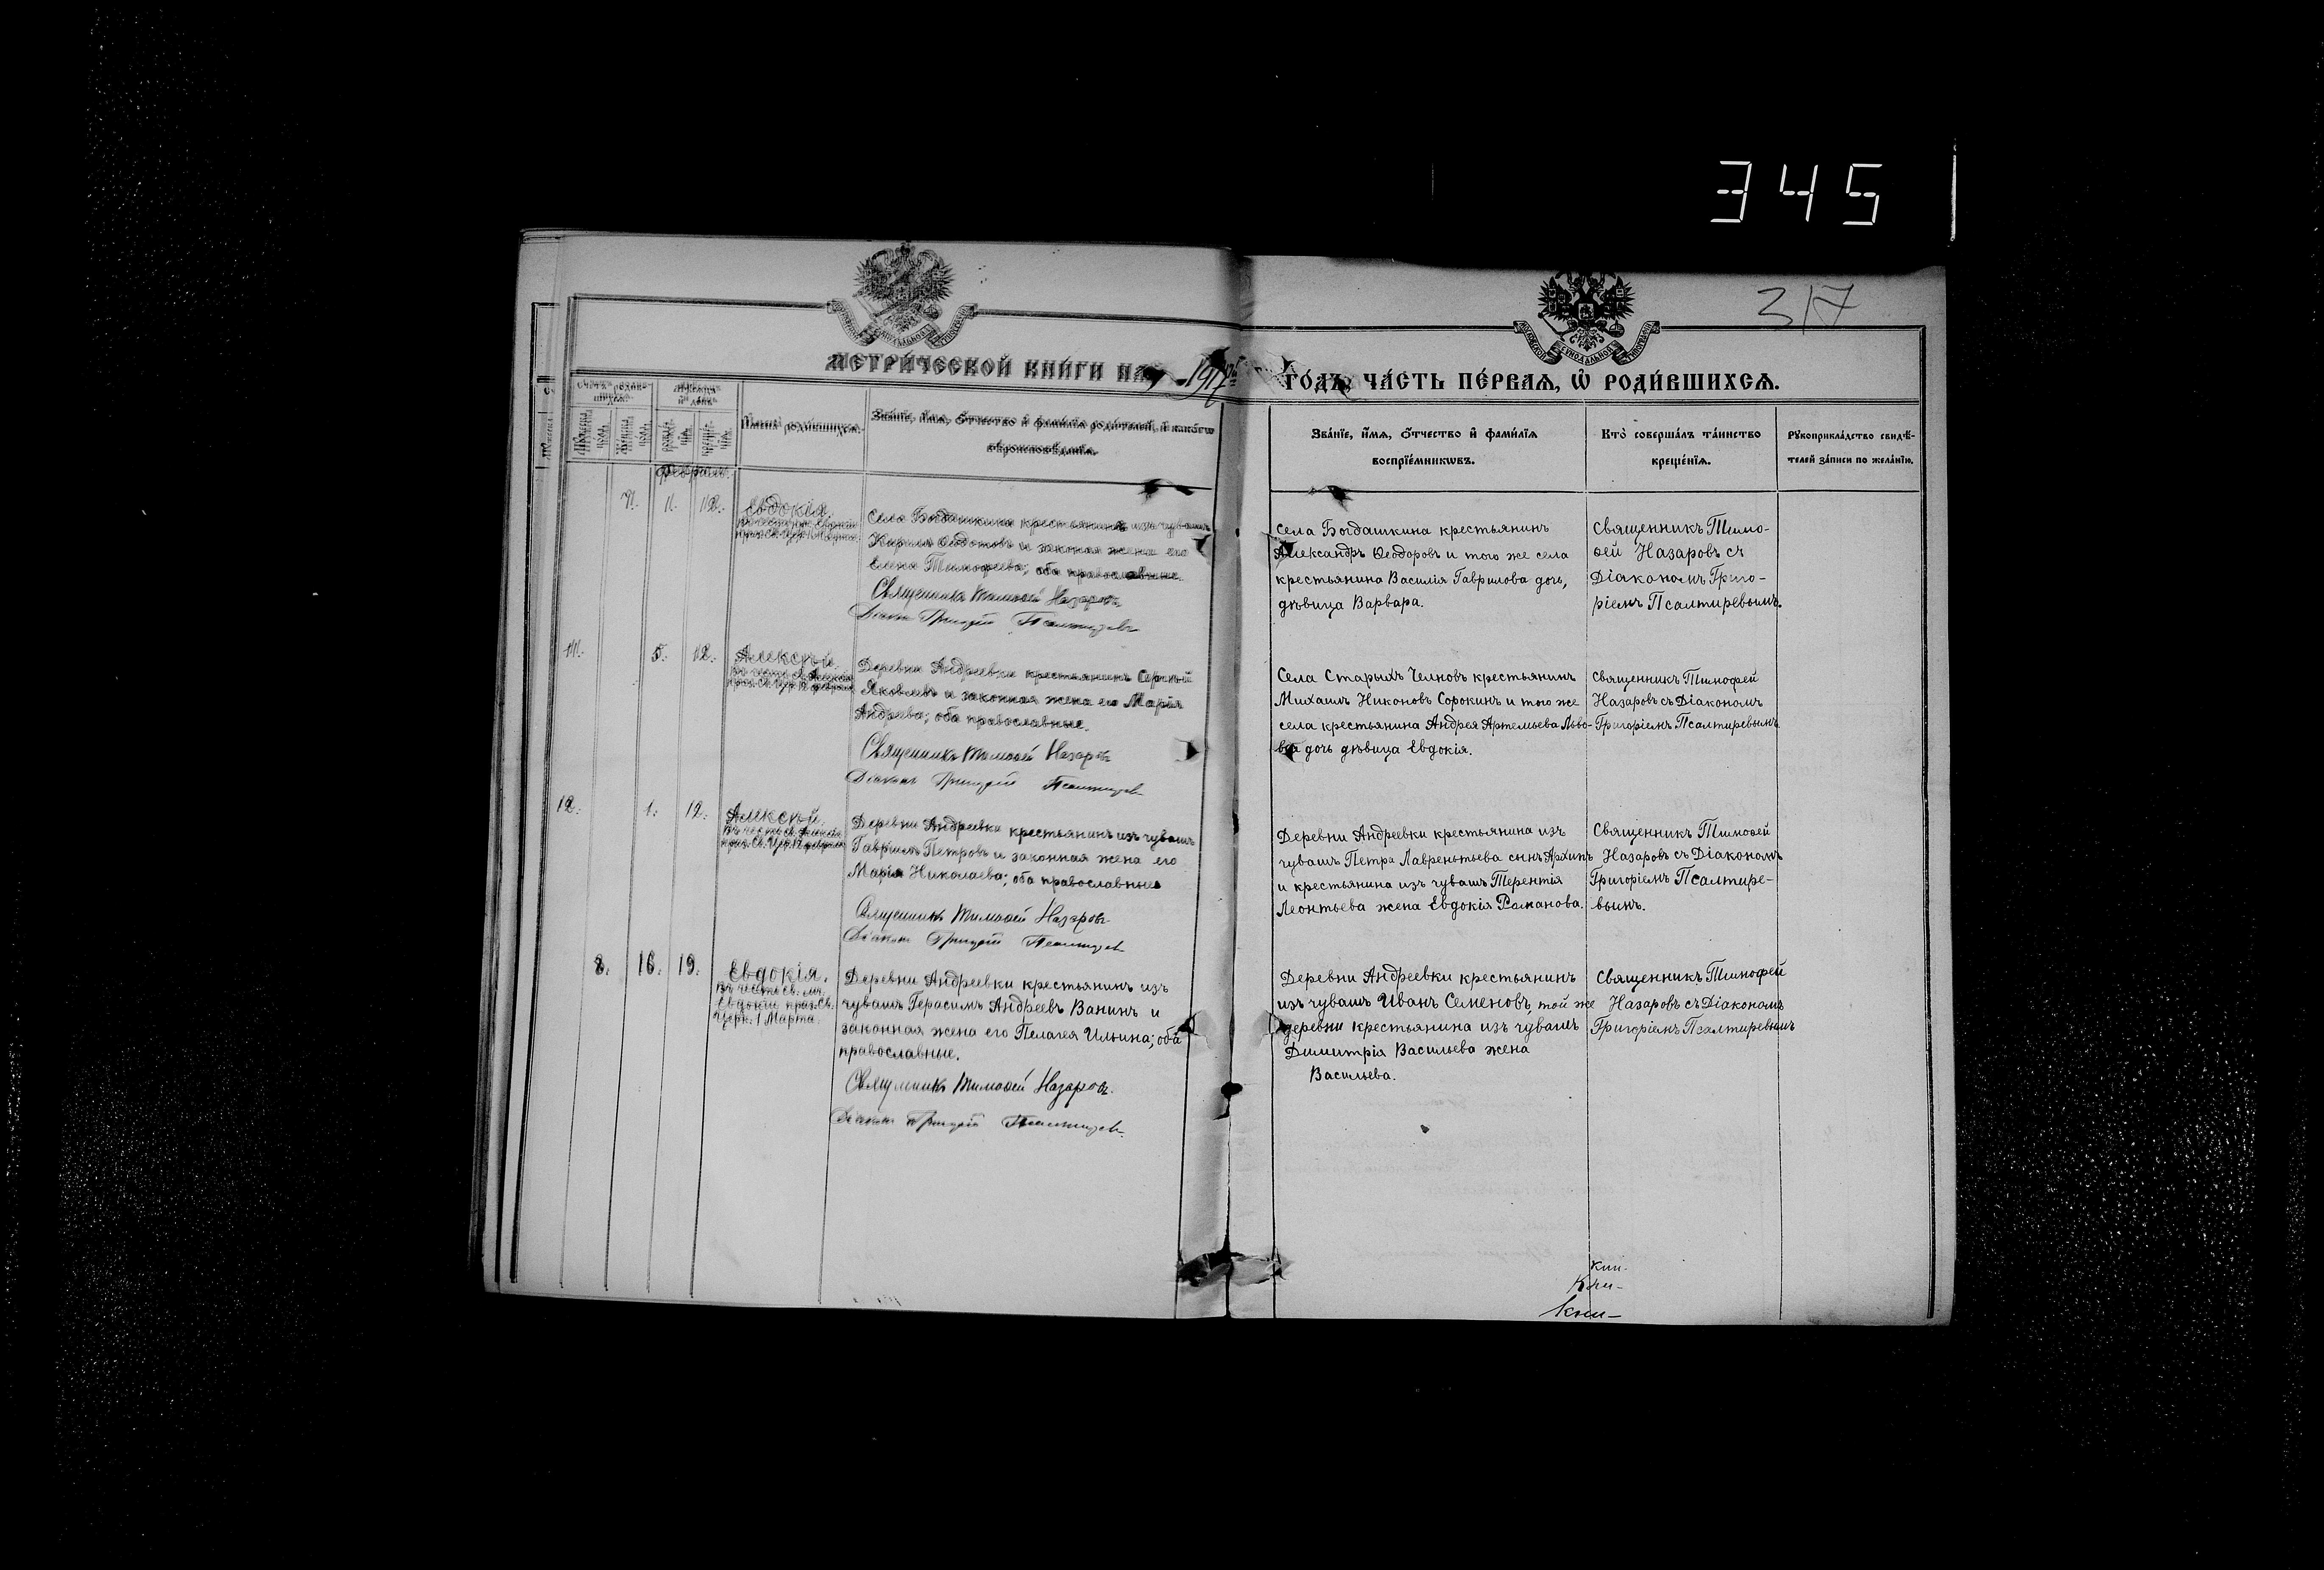 345
317
МЕТРИ́ЧЕСКОЙ КНИ́ГИ НА 1917 ГО́ДЪ, ЧА́СТЬ ПЕ́РВАЯ, Ѡ҆ РОДИ́ВШИХСЯ.
Имена родившихся.
Зва́нїе, и҆́мя, ѻ҆́тчество и҆ фами́лїя роди́телей, и҆ како́гѡ
вѣроисповѣ́данїя.
Зва́нїе, и҆́мя, ѻ҆́тчество и҆ фами́лїя
воспрїе́мникѡвъ.
Кто̀ соверша́лъ та́инство
креще́нїя.
Рꙋкоприкла́дство свидѣ́-
телей за́писи по жела́нїю.
Февраль.
11. 12.
Евдокія.
Села Богдашкина крестьянинъ изъ чувашъ
Кириллъ Ѳедотовъ и законная жена его
Елена Тимофеева; оба православные.
Священникъ Тимоѳей Назаровъ
Діаконъ Григорій Псалтиревъ
Села Богдашкина крестьянинъ
Александръ Ѳеодоровъ и того же села
крестьянина Василія Гаврилова дочь,
дѣвица Варвара.
Священникъ Тимо-
ѳей Назаровъ съ
Діакономъ Григо-
ріемъ Псалтиревымъ.
11. 5. 12.
Алексѣй.
Деревни Андреевки крестьянинъ Сергѣй
Яковлевъ и законная жена его Марія
Андреева; оба православные.
Священникъ Тимоѳей Назаровъ
Діаконъ Григорій Псалтиревъ
Села Старыхъ Челновъ крестьянинъ
Михаилъ Никоновъ Сорокинъ и того же
села крестьянина Андрея Артемьева Льво-
ва дочь дѣвица Евдокія.
Священникъ Тимофей
Назаровъ съ Діакономъ
Григоріемъ Псалтиревымъ
12. 1. 12.
Алексѣй.
Деревни Андреевки крестьянинъ изъ чувашъ
Гавріилъ Петровъ и законная жена его
Марія Николаева; оба православные
Священникъ Тимоѳей Назаровъ
Діаконъ Григорій Псалтиревъ
Деревни Андреевки крестьянина изъ
чувашъ Петра Лаврентьева сынъ Архипъ
и крестьянина изъ чувашъ Терентія
Леонтьева жена Евдокія Романова.
Священникъ Тимоѳей
Назаровъ съ Діакономъ
Григоріемъ Псалтире-
вымъ.
8. 16. 19.
Евдокія.
въ честь св. мч.
Евдокіи праз. Св.
Церк. 1 Марта.
Деревни Андреевки крестьянинъ изъ
чувашъ Герасимъ Андреевъ Ванинъ и
законная жена его Пелагея Ильина; оба
православные.
Священникъ Тимоѳей Назаровъ.
Діаконъ Григорій Псалтиревъ.
Деревни Андреевки крестьянинъ
изъ чувашъ Иванъ Семеновъ, той же
деревни крестьянина изъ чувашъ
Димитрія Васильева жена
Васильева.
Священникъ Тимофей
Назаровъ съ Діакономъ
Григоріемъ Псалтиревымъ
кни-
кни-
кни-